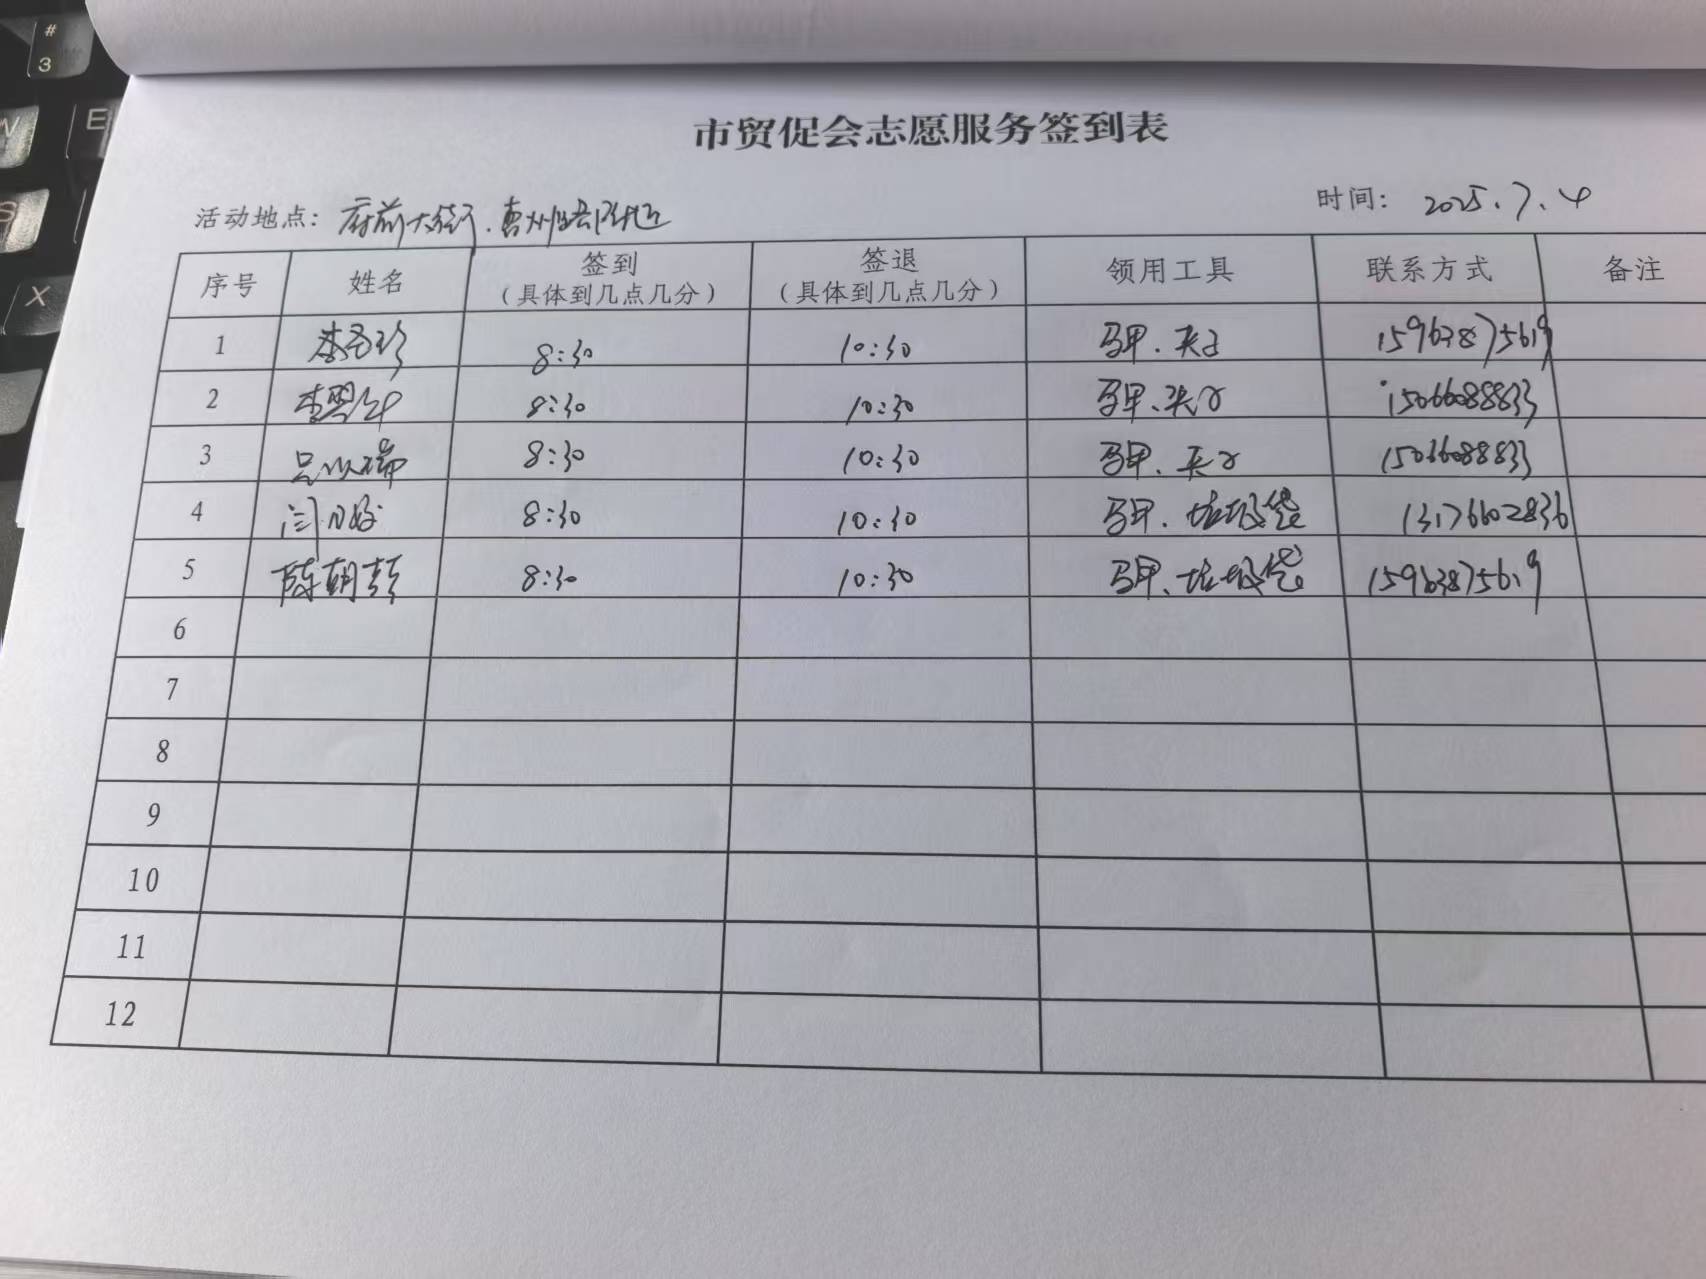 市贸促会志愿服务签到表
活动地点: 府前大街. 时间: 2025.7.4
序号 姓名 签到 (具体到几点几分) 签退 (具体到几点几分) 领用工具 联系方式 备注
1 8:30 10:30 马甲、夹子 15963875619
2 8:30 10:30 马甲、夹子 15066088833
3 8:30 10:30 马甲、夹子 15066088833
4 8:30 10:30 马甲、垃圾袋 13176602836
5 陈朝 8:30 10:30 马甲、垃圾袋 15963875619
6
7
8
9
10
11
12
# 3
W
E
S
X